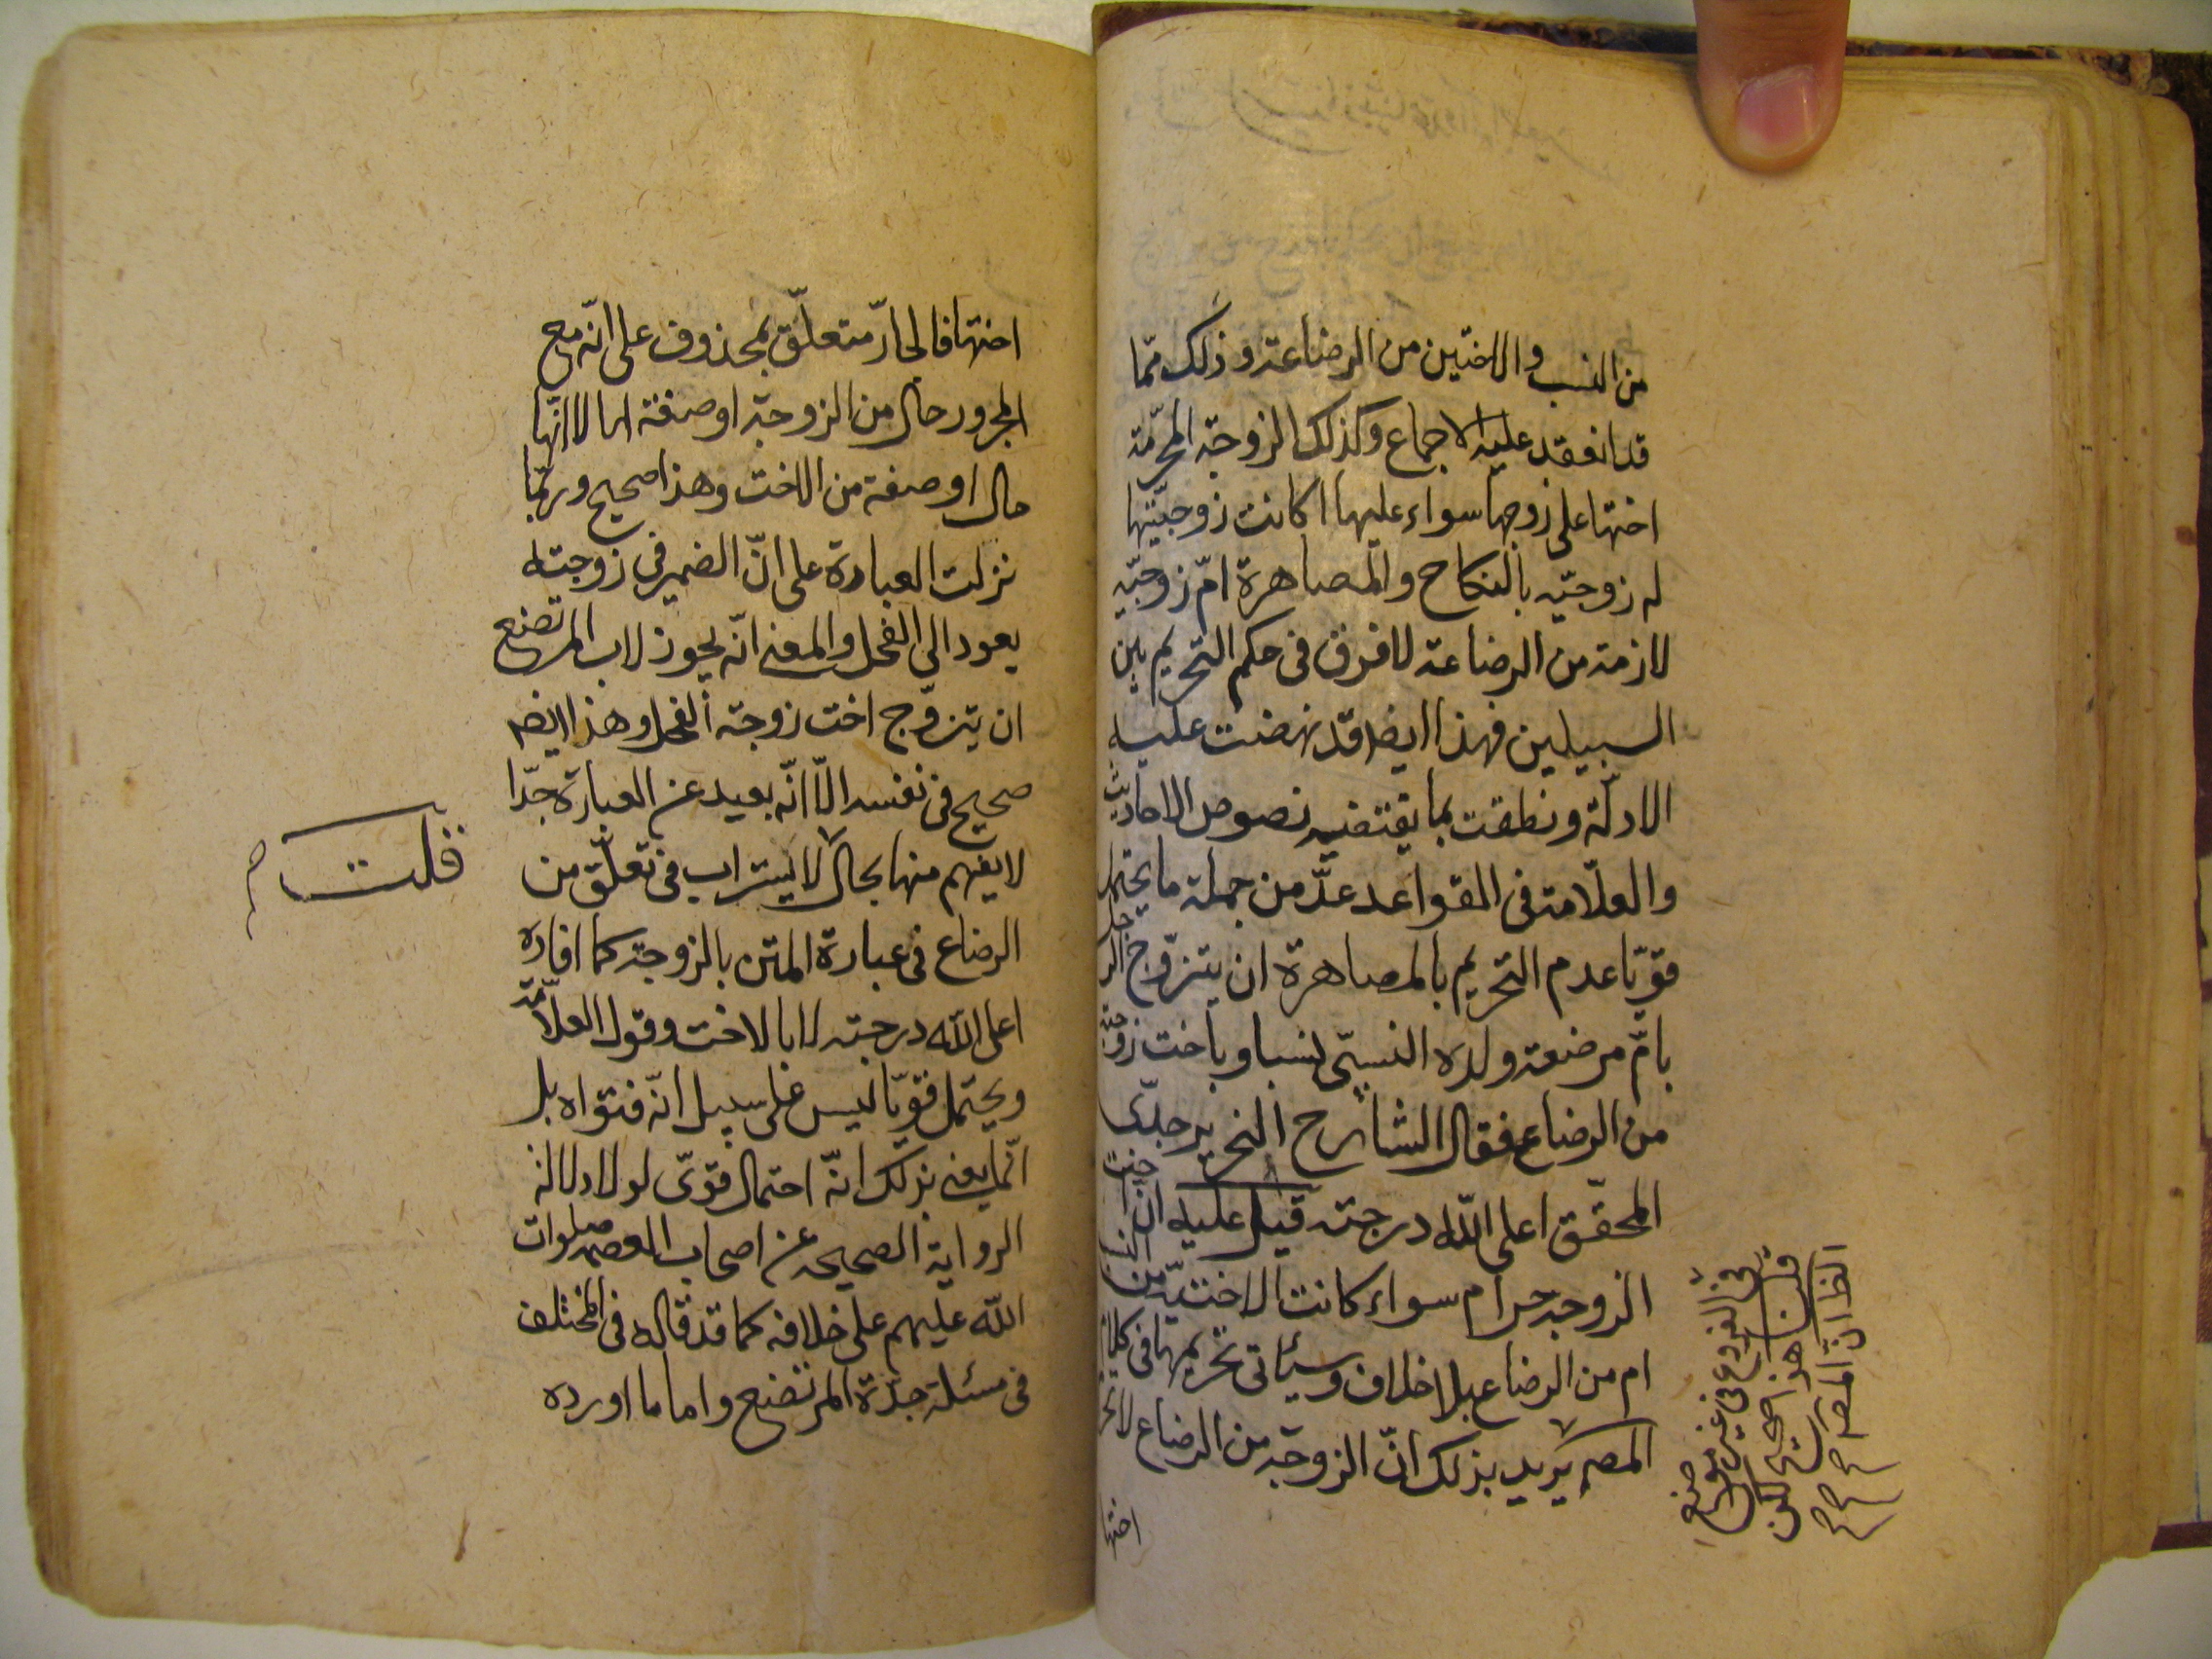 من النسب والاختين من الرضاعة وذلك ممّا
قد انعقد عليه الاجماع وكذلك الزوجة المحرّمة
اختها على زوجها سواء عليها اكانت زوجيّتها
له زوجيّة بالنكاح والمصاهرة امّ زوجيّة
لازمة من الرضاعة لا فرق فى حكم التحريم بين
السبيلين فهذا ايضا قد نهضت عليه
الادلّة ونطقت بما يقتضيه نصوص الاحاديث
والعلّامة فى القواعد عدّ من جملة ما يحتمل
قويّا عدم التحريم بالمصاهرة ان يتزوّج الرجل
بامّ مرضعة ولده النسبىّ نسبا وباخت زوجته
من الرضاع فقال الشارح النحرير جدّى
المحقّق اعلى الله درجته قيل عليه انّ اخت
الزوجة حرام سواء كانت الاختيّة من النسب
ام من الرضاع بلا خلاف وسيأتى تحريمها فى كلام
المصـ يريد بذلك انّ الزوجة من الرضاع لا تحرم
اختها
الظ ان المصـ
قلت هذا صحيح لكن
فى الفروع فى غير موضع
اختها فالجارّ متعلّق بمحذوف على انّه مع
المجرور حال من الزوجة او صفة لها لا انّها
حال او صفة من الاخت وهذا صحيح وربّما
نزلت العبارة على انّ الضمير فى زوجته
يعود الى الفحل والمعنى انّه يجوز لاب المرتضع
ان يتزوّج اخت زوجة الفحل وهذا ايضا
صحيح فى نفسه الّا انّه بعيد عن العبارة جدّا
لا يفهم منها بحال لا يستراب فى تعلّق من
قلت
الرضاع فى عبارة المتن بالزوجة كما افاده
اعلى الله درجته لا بالاخت وقول العلّامة
ويحتمل قويّا ليس على سبيل انّه فتواه بل
انّما يعنى بذلك انّه احتمال قوىّ لولا دلالة
الرواية الصحيحة عن اصحاب العصمة صلوات
الله عليهم على خلافه كما قد قاله فى المختلف
فى مسئلة جدّة المرتضع واما ما اورده